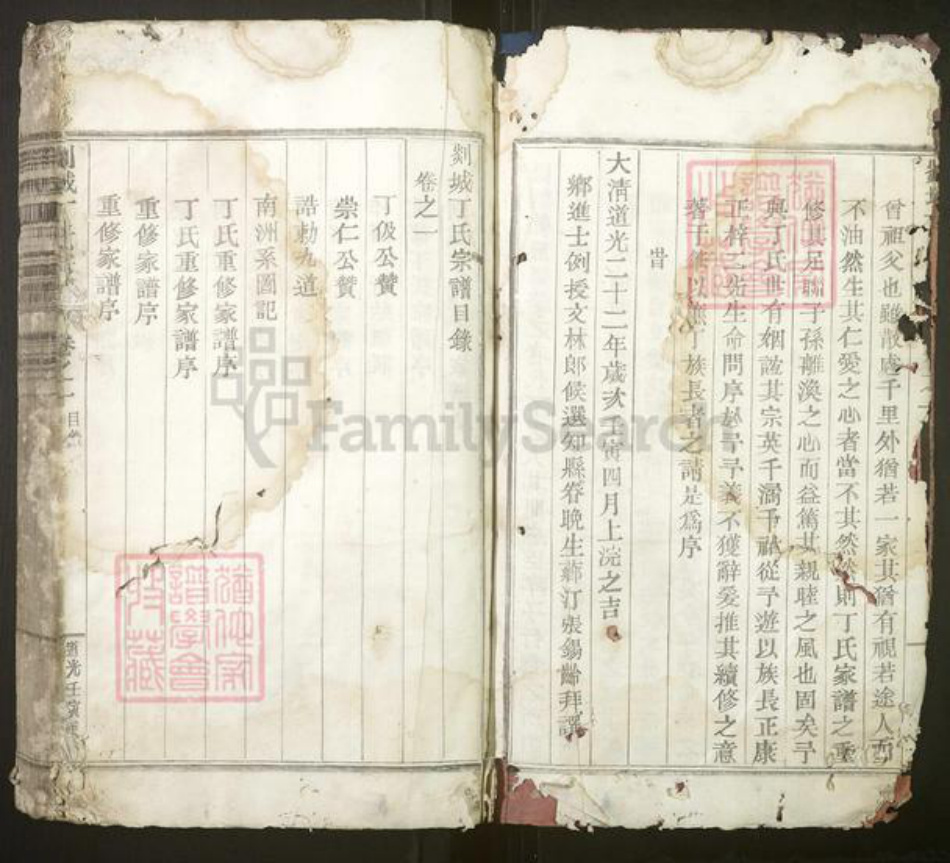 曾祖父也雖散處千里外猶若一家其猶有視若途人而
不油然生其仁愛之心者當不其然然則丁氏家譜之重
修其足聯子孫離渙之心而益篤其親睦之風也固矣予
與丁氏世有姻誼其宗英千 從予遊以族長正康
正梓二先生命問序於予予義不獲辭爰推其續修之意
著于 以 丁族長者之請是為序
旹
大清道光二十二年歲次壬寅四月上浣之吉
鄉進士例授文林郎候選知縣眷晚生 汀張錫齡拜譔
剡城丁氏宗譜目錄
卷之一
丁伋公贊
崇仁公贊
誥勅九道
南洲系圖記
丁氏重修家譜序
丁氏重修家譜序
重修家譜序
重修家譜序
剡城 卷之一 目錄 道光壬寅
譜學會 收藏
FamilySearch